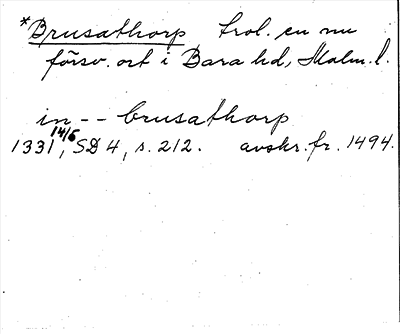 *Brusathorp trol. en nu
försv. ort i Bara hd, Malm. l.
in -- brusathorp
1331 14/6, SD 4, s. 212. avskr. fr. 1494.